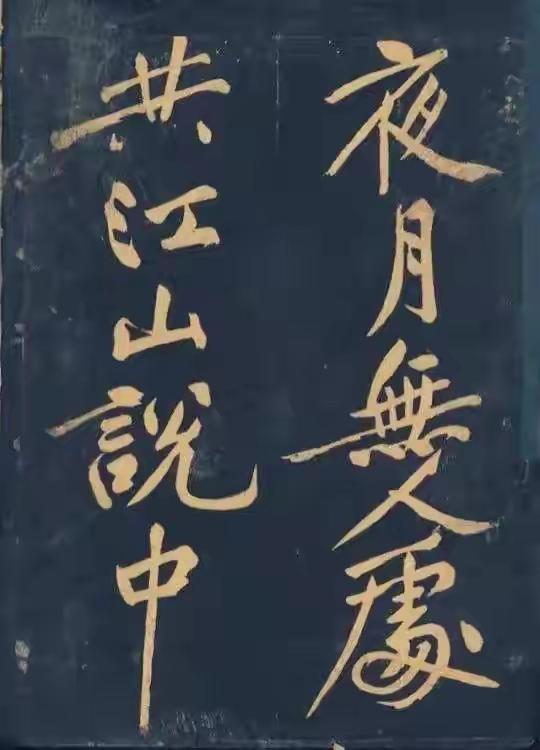 夜月無人處
共江山説中